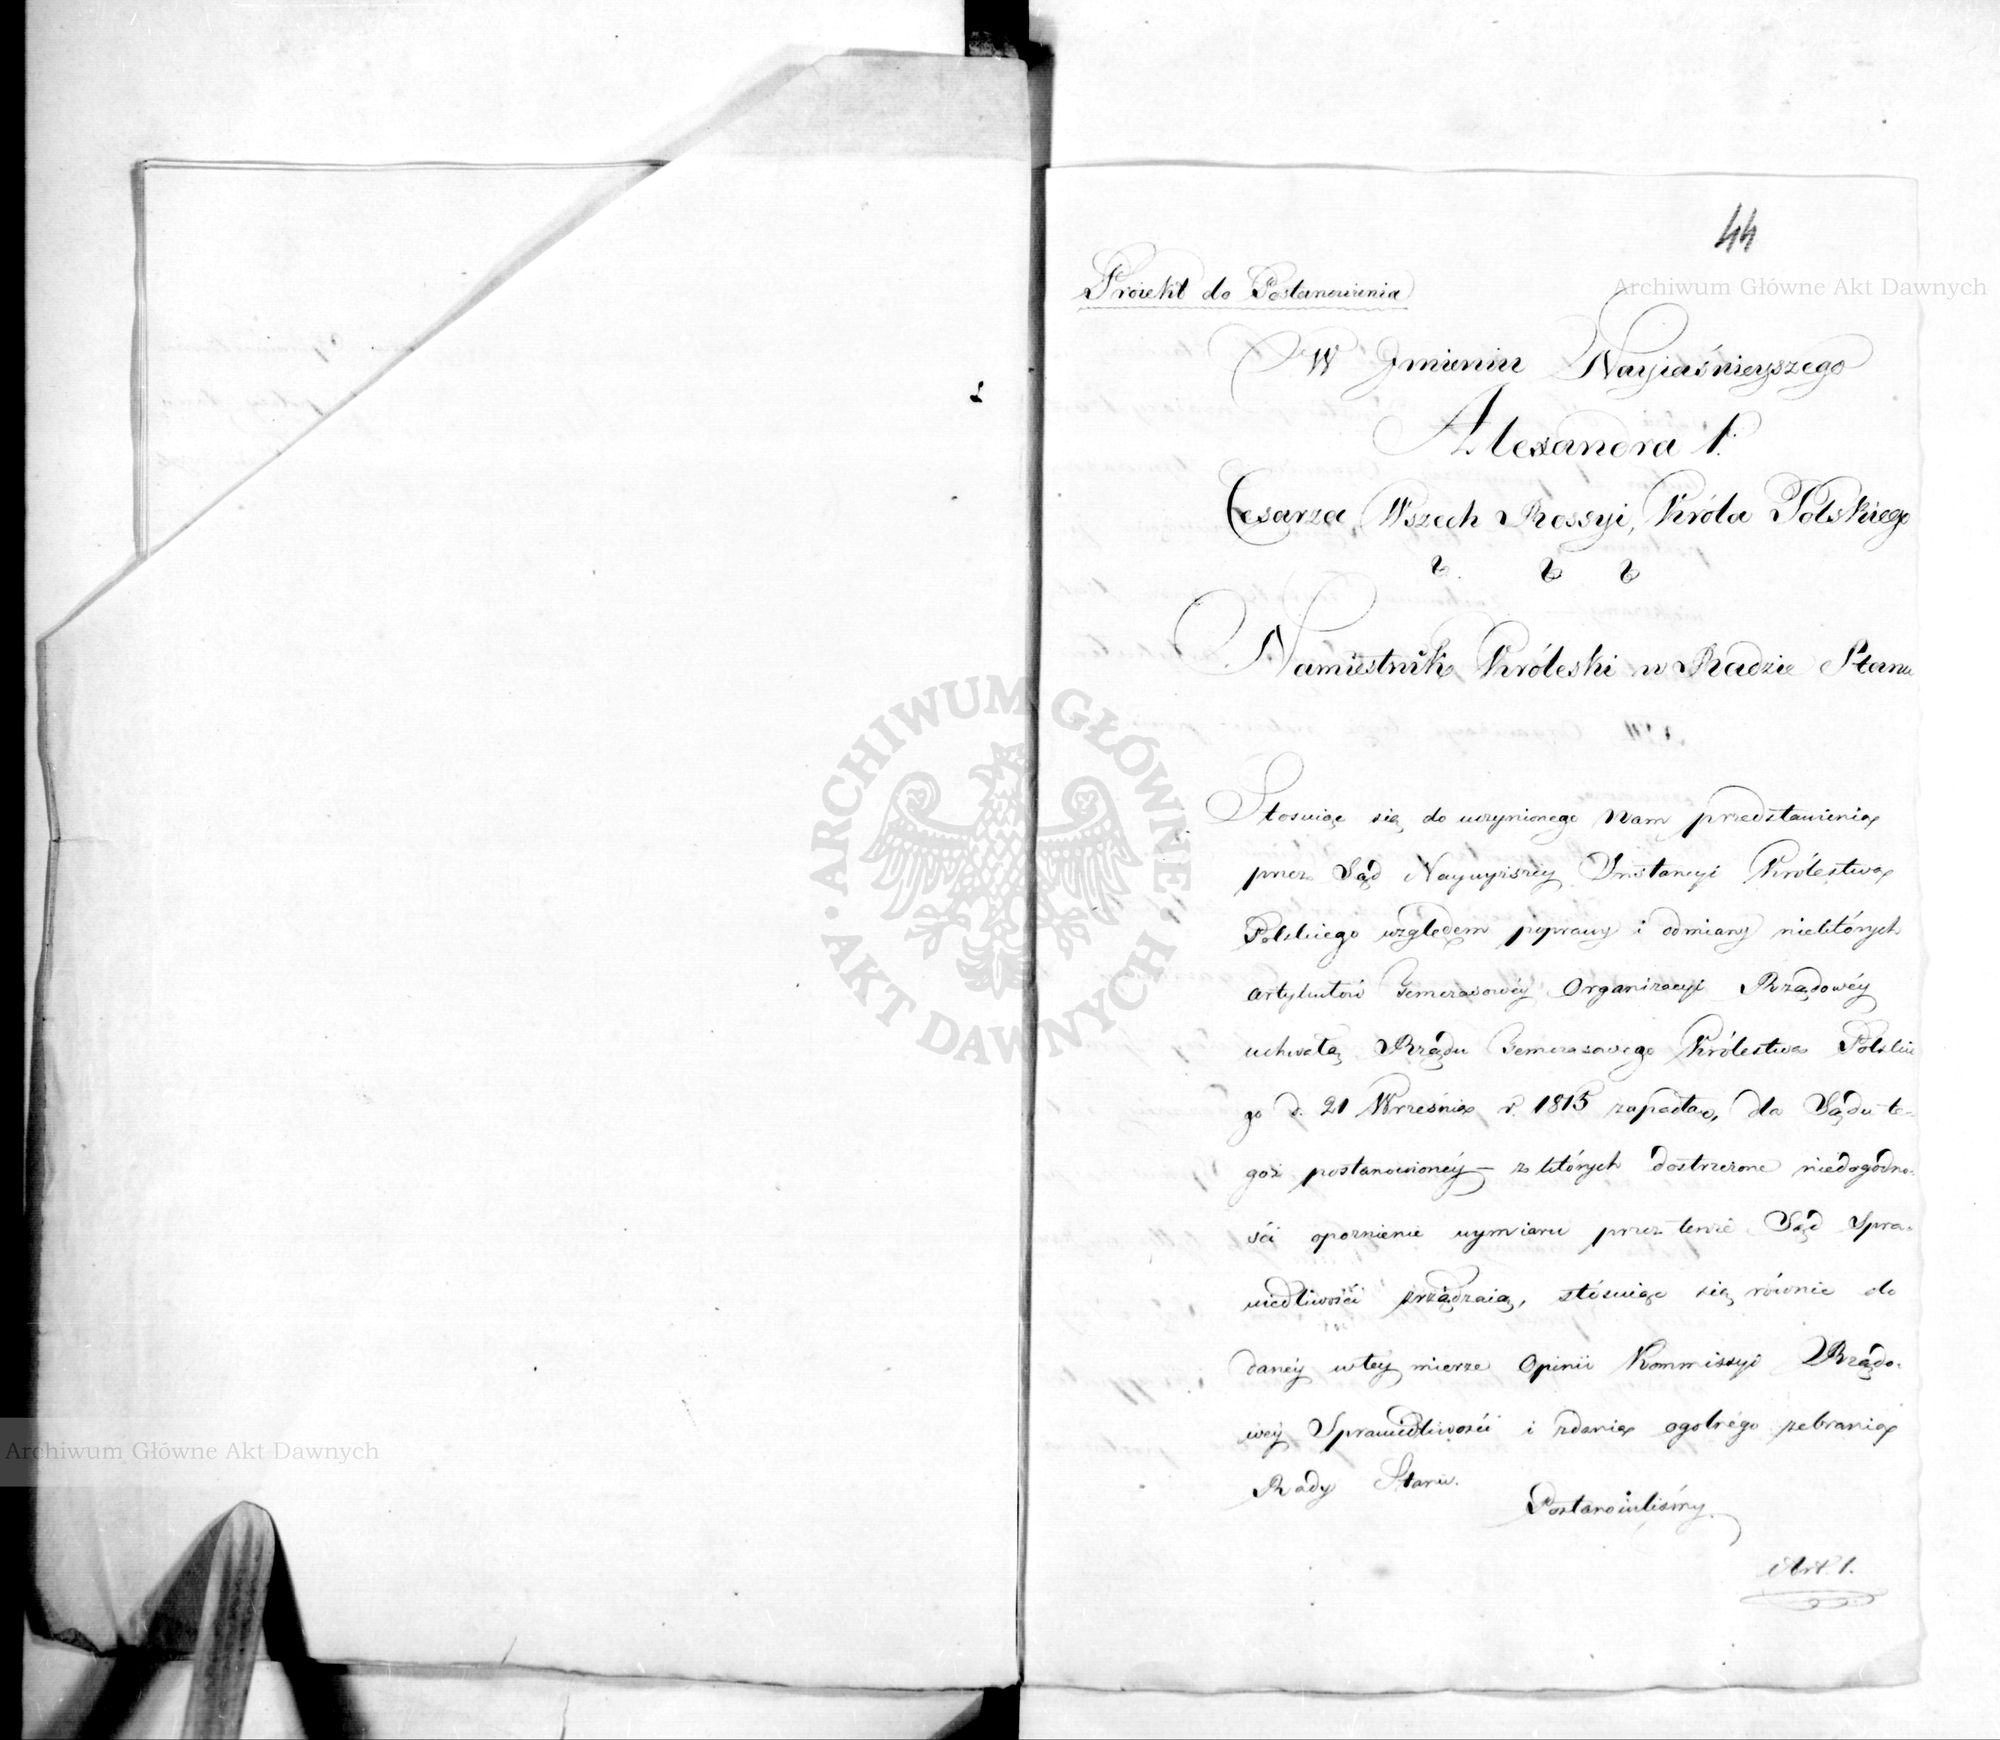 44
Proiekt do Postanowienia
W Jmieniu Nayiaśnieyszego
Alexandra I.
Cesarza Wszech Rossyi, Króla Polskiego
Namiestnik Króleski w Radzie Stanu
Stosuiąc się do uczynionego Nam przedstawienia
przez Sąd Naywyższey Instancyi Królestwa
Polskiego względem poprawy i odmiany niektórych
artykułów Temczasowéy Organizacyi Rządowéy
uchwałą Rządu Temczasowego Królestwa Polskie
go d. 21 Września r. 1815 zapadłą, dla Sądu te-
goż postanowionéy – z których dostrzeżone niedogodno-
ści opoznienie wymiaru przez tenże Sąd Spra-
wiedliwości zrządzaią, stósuiąc się równie do
danéy w téy mierze Opinii Kommissyi Rządo-
wéy Sprawiedliwości i zdania ogolnégo zebrania
Rady Stanu.
Postanowiliśmy
Art. 1.
Archiwum Główne Akt Dawnych
Archiwum Główne Akt Dawnych
ARCHIWUM GŁÓWNE
AKT DAWNYCH